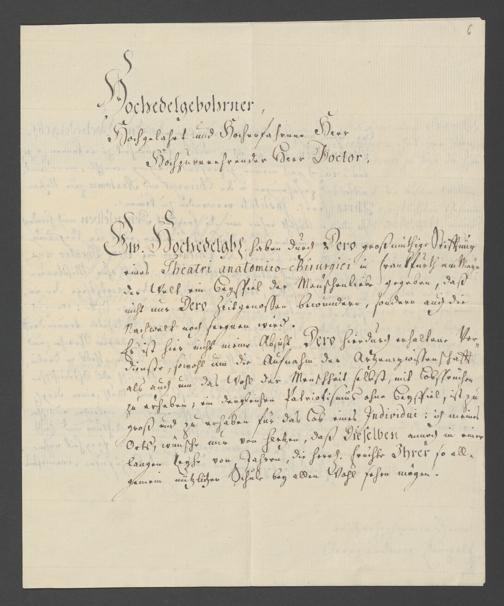 6
Hochedelgebohrner,
Hochgelahrt und Hocherfahrner Herr
Hochzuverehrender Herr Doctor,
Ew. Hochedelgb. haben durch Dero großmüthige Stiftung
eines Theatri anatomico-chirurgici in Frankfurth am Mayn
der Welt ein Beyspiel der Menschenliebe gegeben, daß
nicht nur Dero Zeitgenossen bewundern, sondern auch die
Nachwelt noch seegnen wird.
Es ist hier nicht meine Absicht Dero hierdurch erhaltene Ver-
dienste, sowohl um die Aufnahm der Arzeneywissenschaft
als auch um das Wohl der Menschheit selbst, mit Lobsprüchen
zu erheben, ein dergleichen Patriotismus ohne Beyspiel, ist zu
groß und zu erhaben für das Lob eines Individui: ich meines
Orts, wünsche nur von Herzen, daß Dieselben annoch in einer
langen Reyhe von Jahren, die Früchte Ihrer so all-
gemein nützlichen bey allem Wohl sehen mögen.